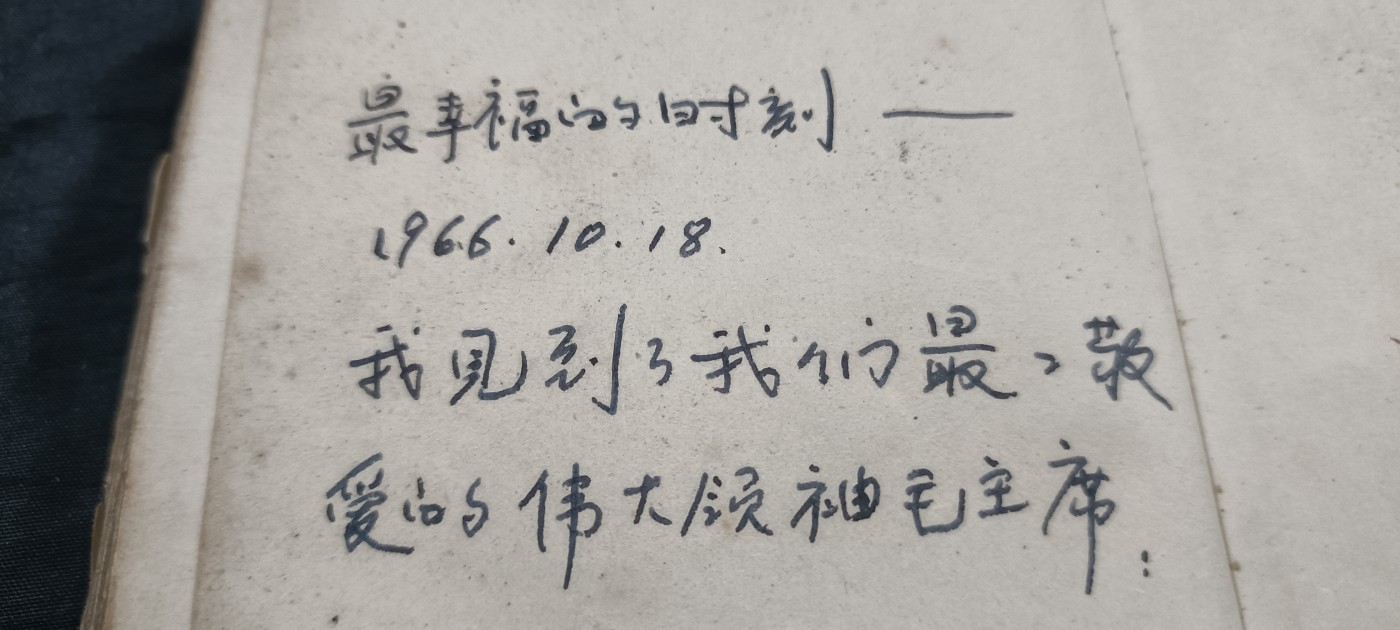 最幸福的时刻 ——
1966.10.18.
我见到了我们最々敬
爱的伟大领袖毛主席: